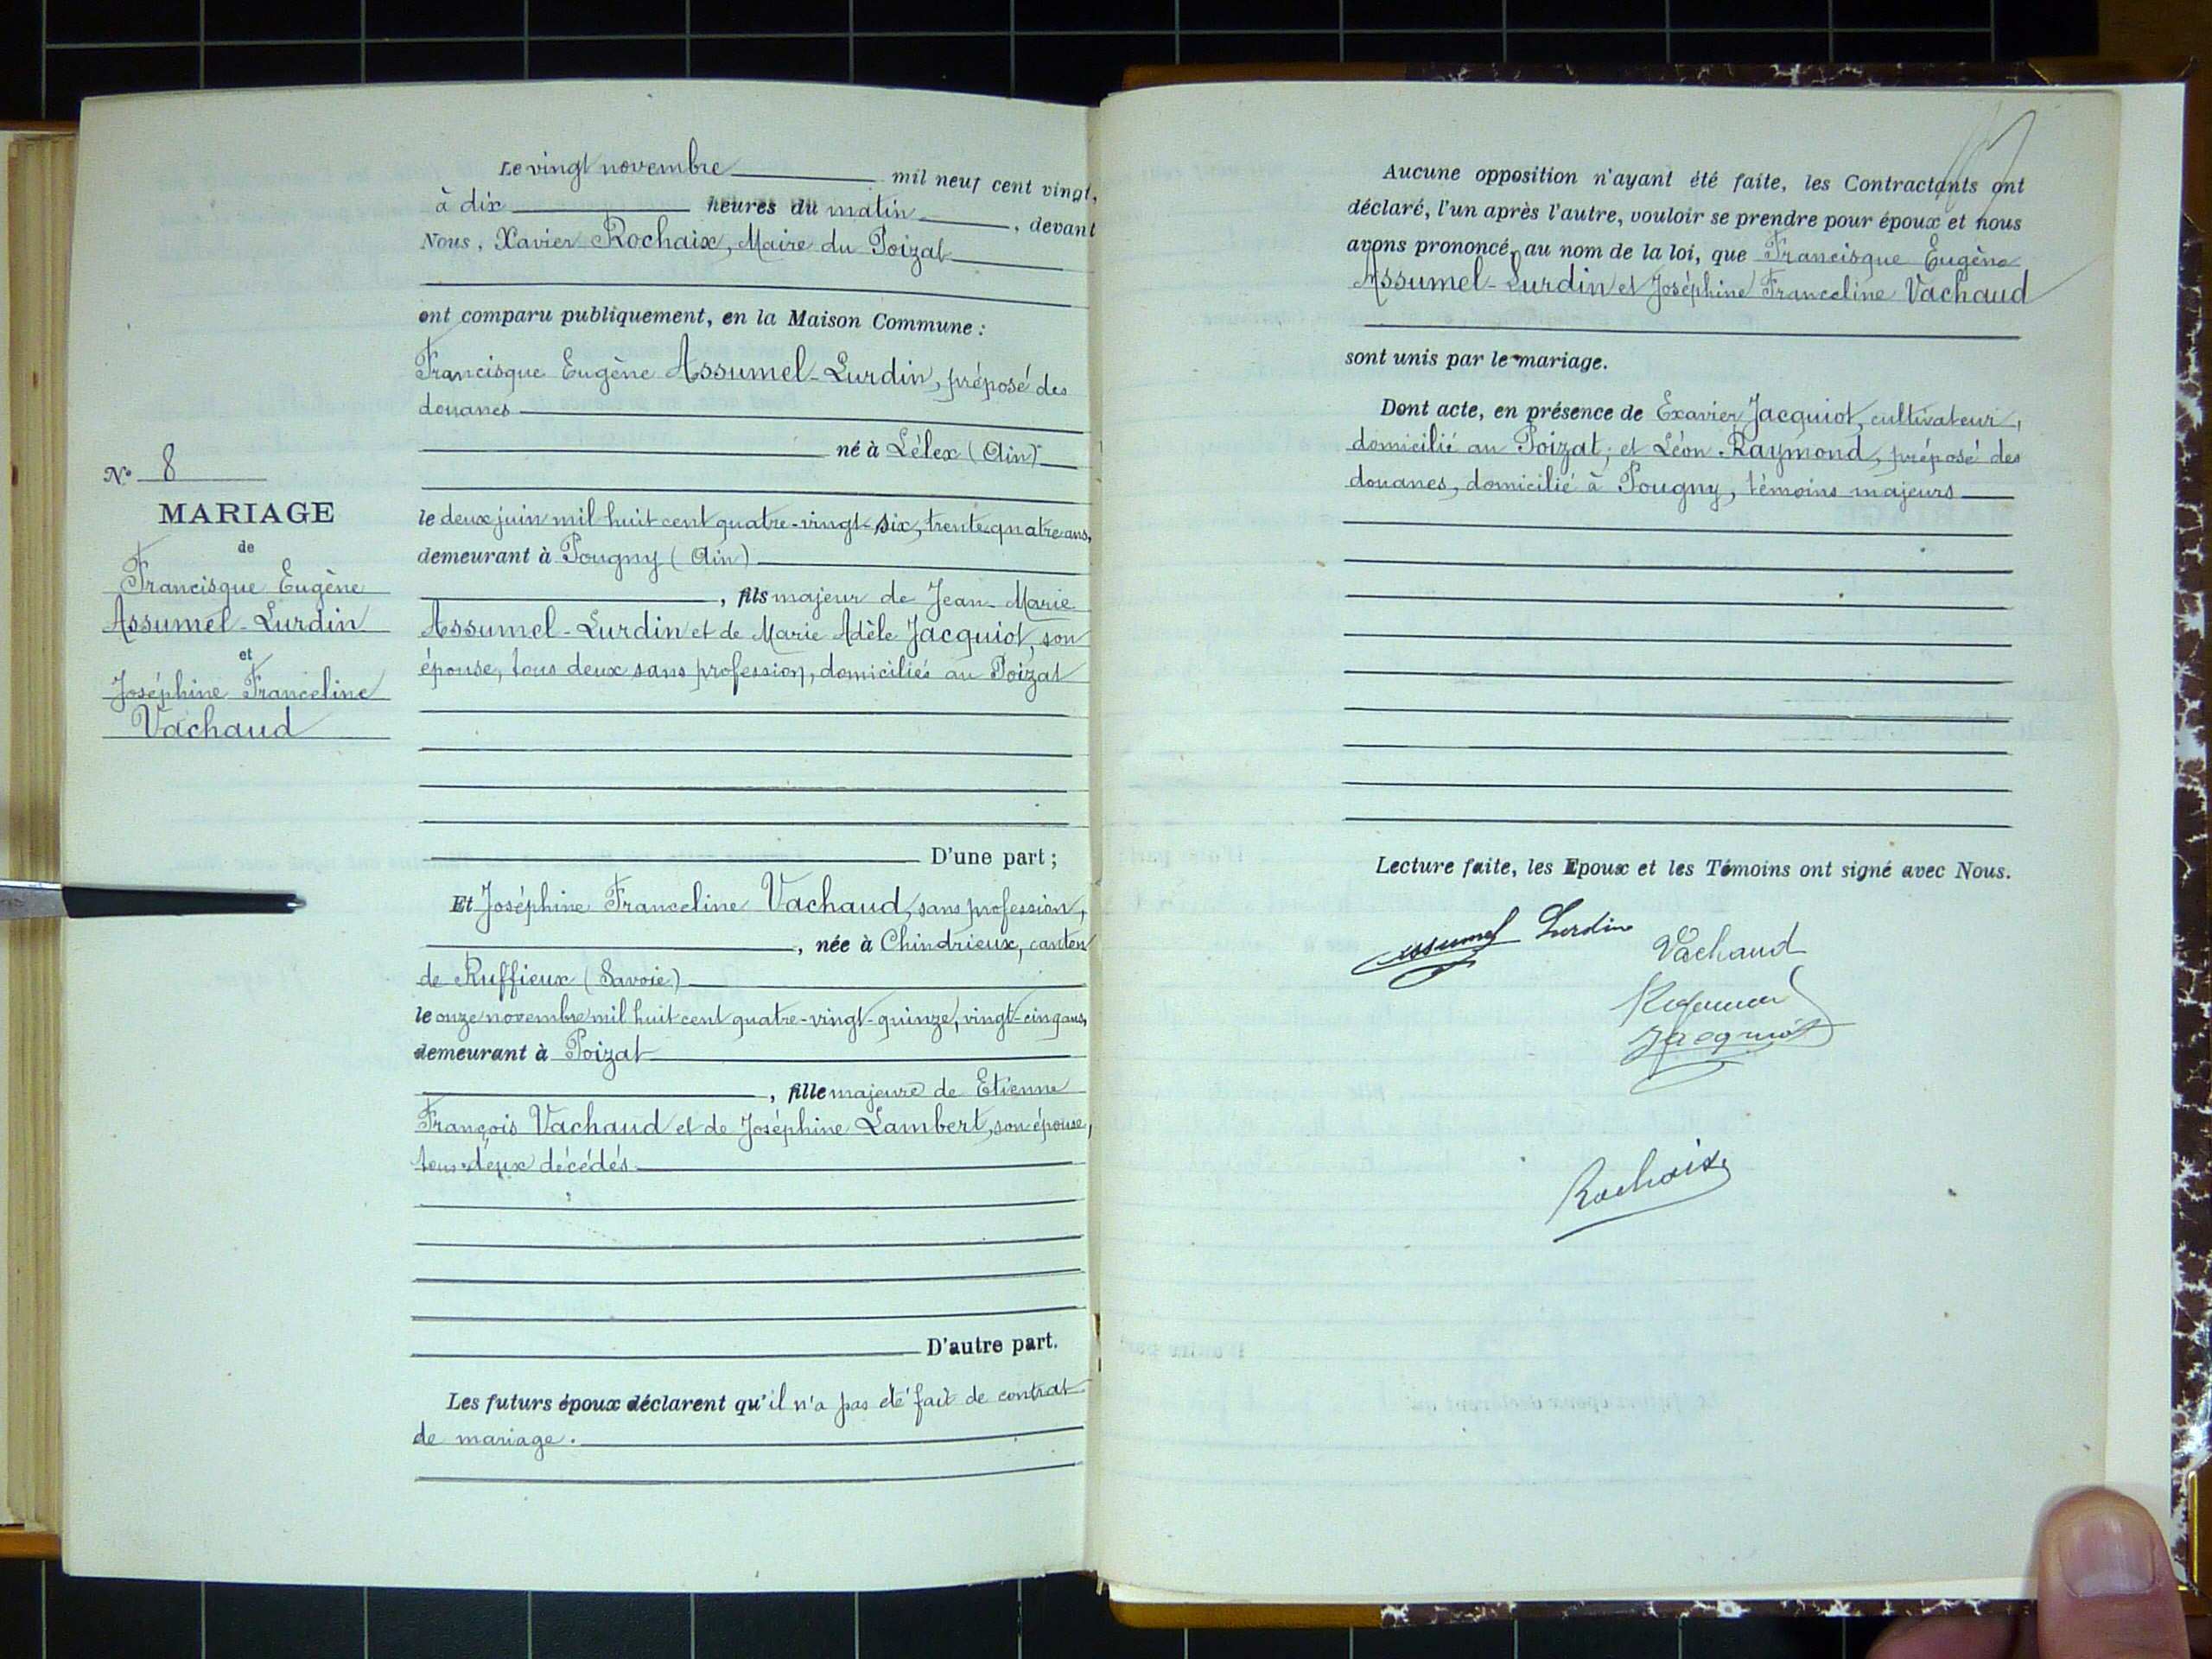 N° 8
MARIAGE
de
Francisque Eugène
Assumel-Lurdin
et
Joséphine Franceline
Vachaud
Le vingt novembre mil neuf cent vingt,
à dix heures du matin, devant
Nous, Xavier Rochaix, Maire du Poizat
ont comparu publiquement, en la Maison Commune :
Francisque Eugène Assumel-Lurdin, préposé des
douanes
né à Lélex (Ain)
le deux juin mil huit cent quatre-vingt-six, trente-quatre ans,
demeurant à Pougny (Ain)
, fils majeur de Jean-Marie
Assumel-Lurdin et de Marie Adèle Jacquiot, son
épouse, tous deux sans profession, domiciliés au Poizat
D'une part ;
Et Joséphine Franceline Vachaud, sans profession,
, née à Chindrieux, canton
de Ruffieux (Savoie)
le onze novembre mil huit cent quatre-vingt-quinze, vingt-cinq ans,
demeurant à Poizat
, fille majeure de Etienne
François Vachaud et de Joséphine Lambert, son épouse,
tous deux décédés
D'autre part.
Les futurs époux déclarent qu'il n'a pas été fait de contrat
de mariage.
Aucune opposition n'ayant été faite, les Contractants ont
déclaré, l'un après l'autre, vouloir se prendre pour époux et nous
avons prononcé, au nom de la loi, que Francisque Eugène
Assumel-Lurdin et Joséphine Franceline Vachaud
sont unis par le mariage.
Dont acte, en présence de Exavier Jacquiot, cultivateur,
domicilié au Poizat, et Léon Raymond, préposé des
douanes, domicilié à Pougny, témoins majeurs
Lecture faite, les Epoux et les Témoins ont signé avec Nous.
Assumel Lurdin
Vachaud
Jacquiot
Rochaix